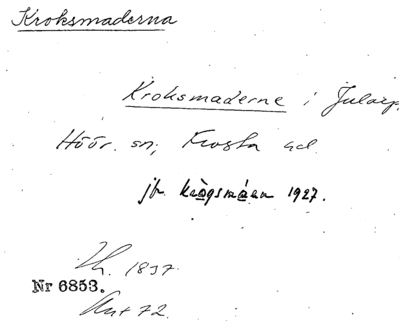 Kroksmaderna
Kroksmaderne i Jularp,
Höör. sn; Frosta hd.
jfr krògsmána 1927.
Lh. 1837.
Nr 6853.
Ant 72.